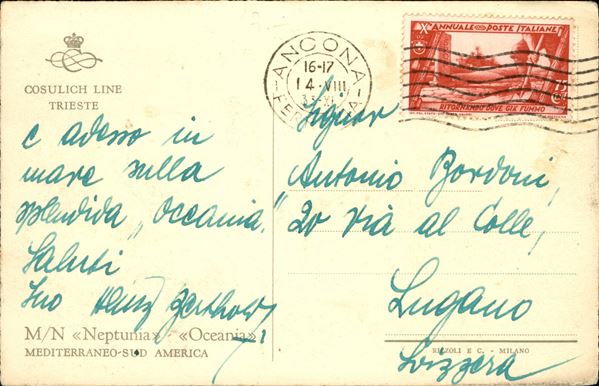 COSULICH LINE
TRIESTE
e adesso in
mare sulla
splendida „Oceania."
Saluti
Suo Hans
M/N «Neptunia» - «Oceania»
MEDITERRANEO-SUD AMERICA
ANCONA
16-17
14·VIII
33·XI
FERROVIA
X ANNUALE POSTE ITALIANE
75
RITORNANDO DOVE GIÀ FUMMO
Signor
Antonio Bordoni,
20 Via al Colle,
Lugano
Svizzera
RIZZOLI E C. - MILANO